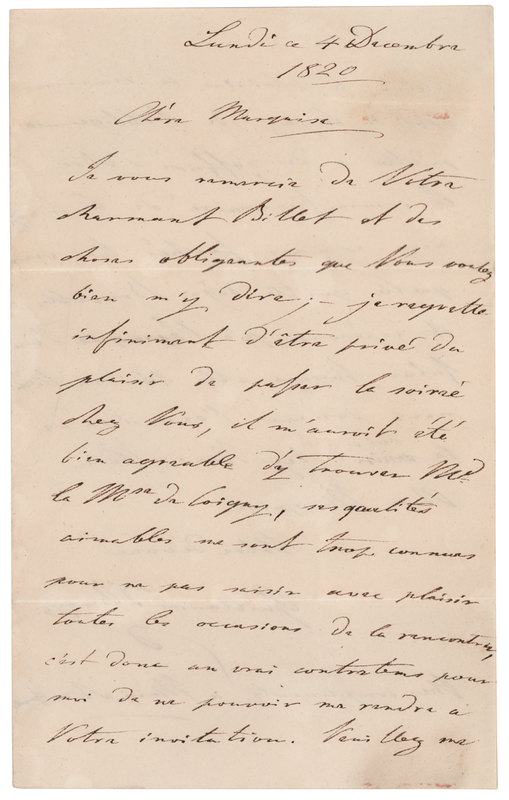 Lundi ce 4 Decembre
1820
Chère Marquise
Je vous remercie de Votre
charmant Billet et des
choses obligeantes que Vous voulez
bien m'y dire; - je regrette
infiniment d'être privé du
plaisir de passer la soirée
chez Vous, il m'auroit été
bien agreable d'y trouver Md.
la Mse de Coigny, ses qualités
aimables me sont trop connues
pour ne pas saisir avec plaisir
toutes les occasions de la rencontrer,
c'est donc un vrai contretems pour
moi de ne pouvoir me rendre a
Votre invitation. Veuillez me